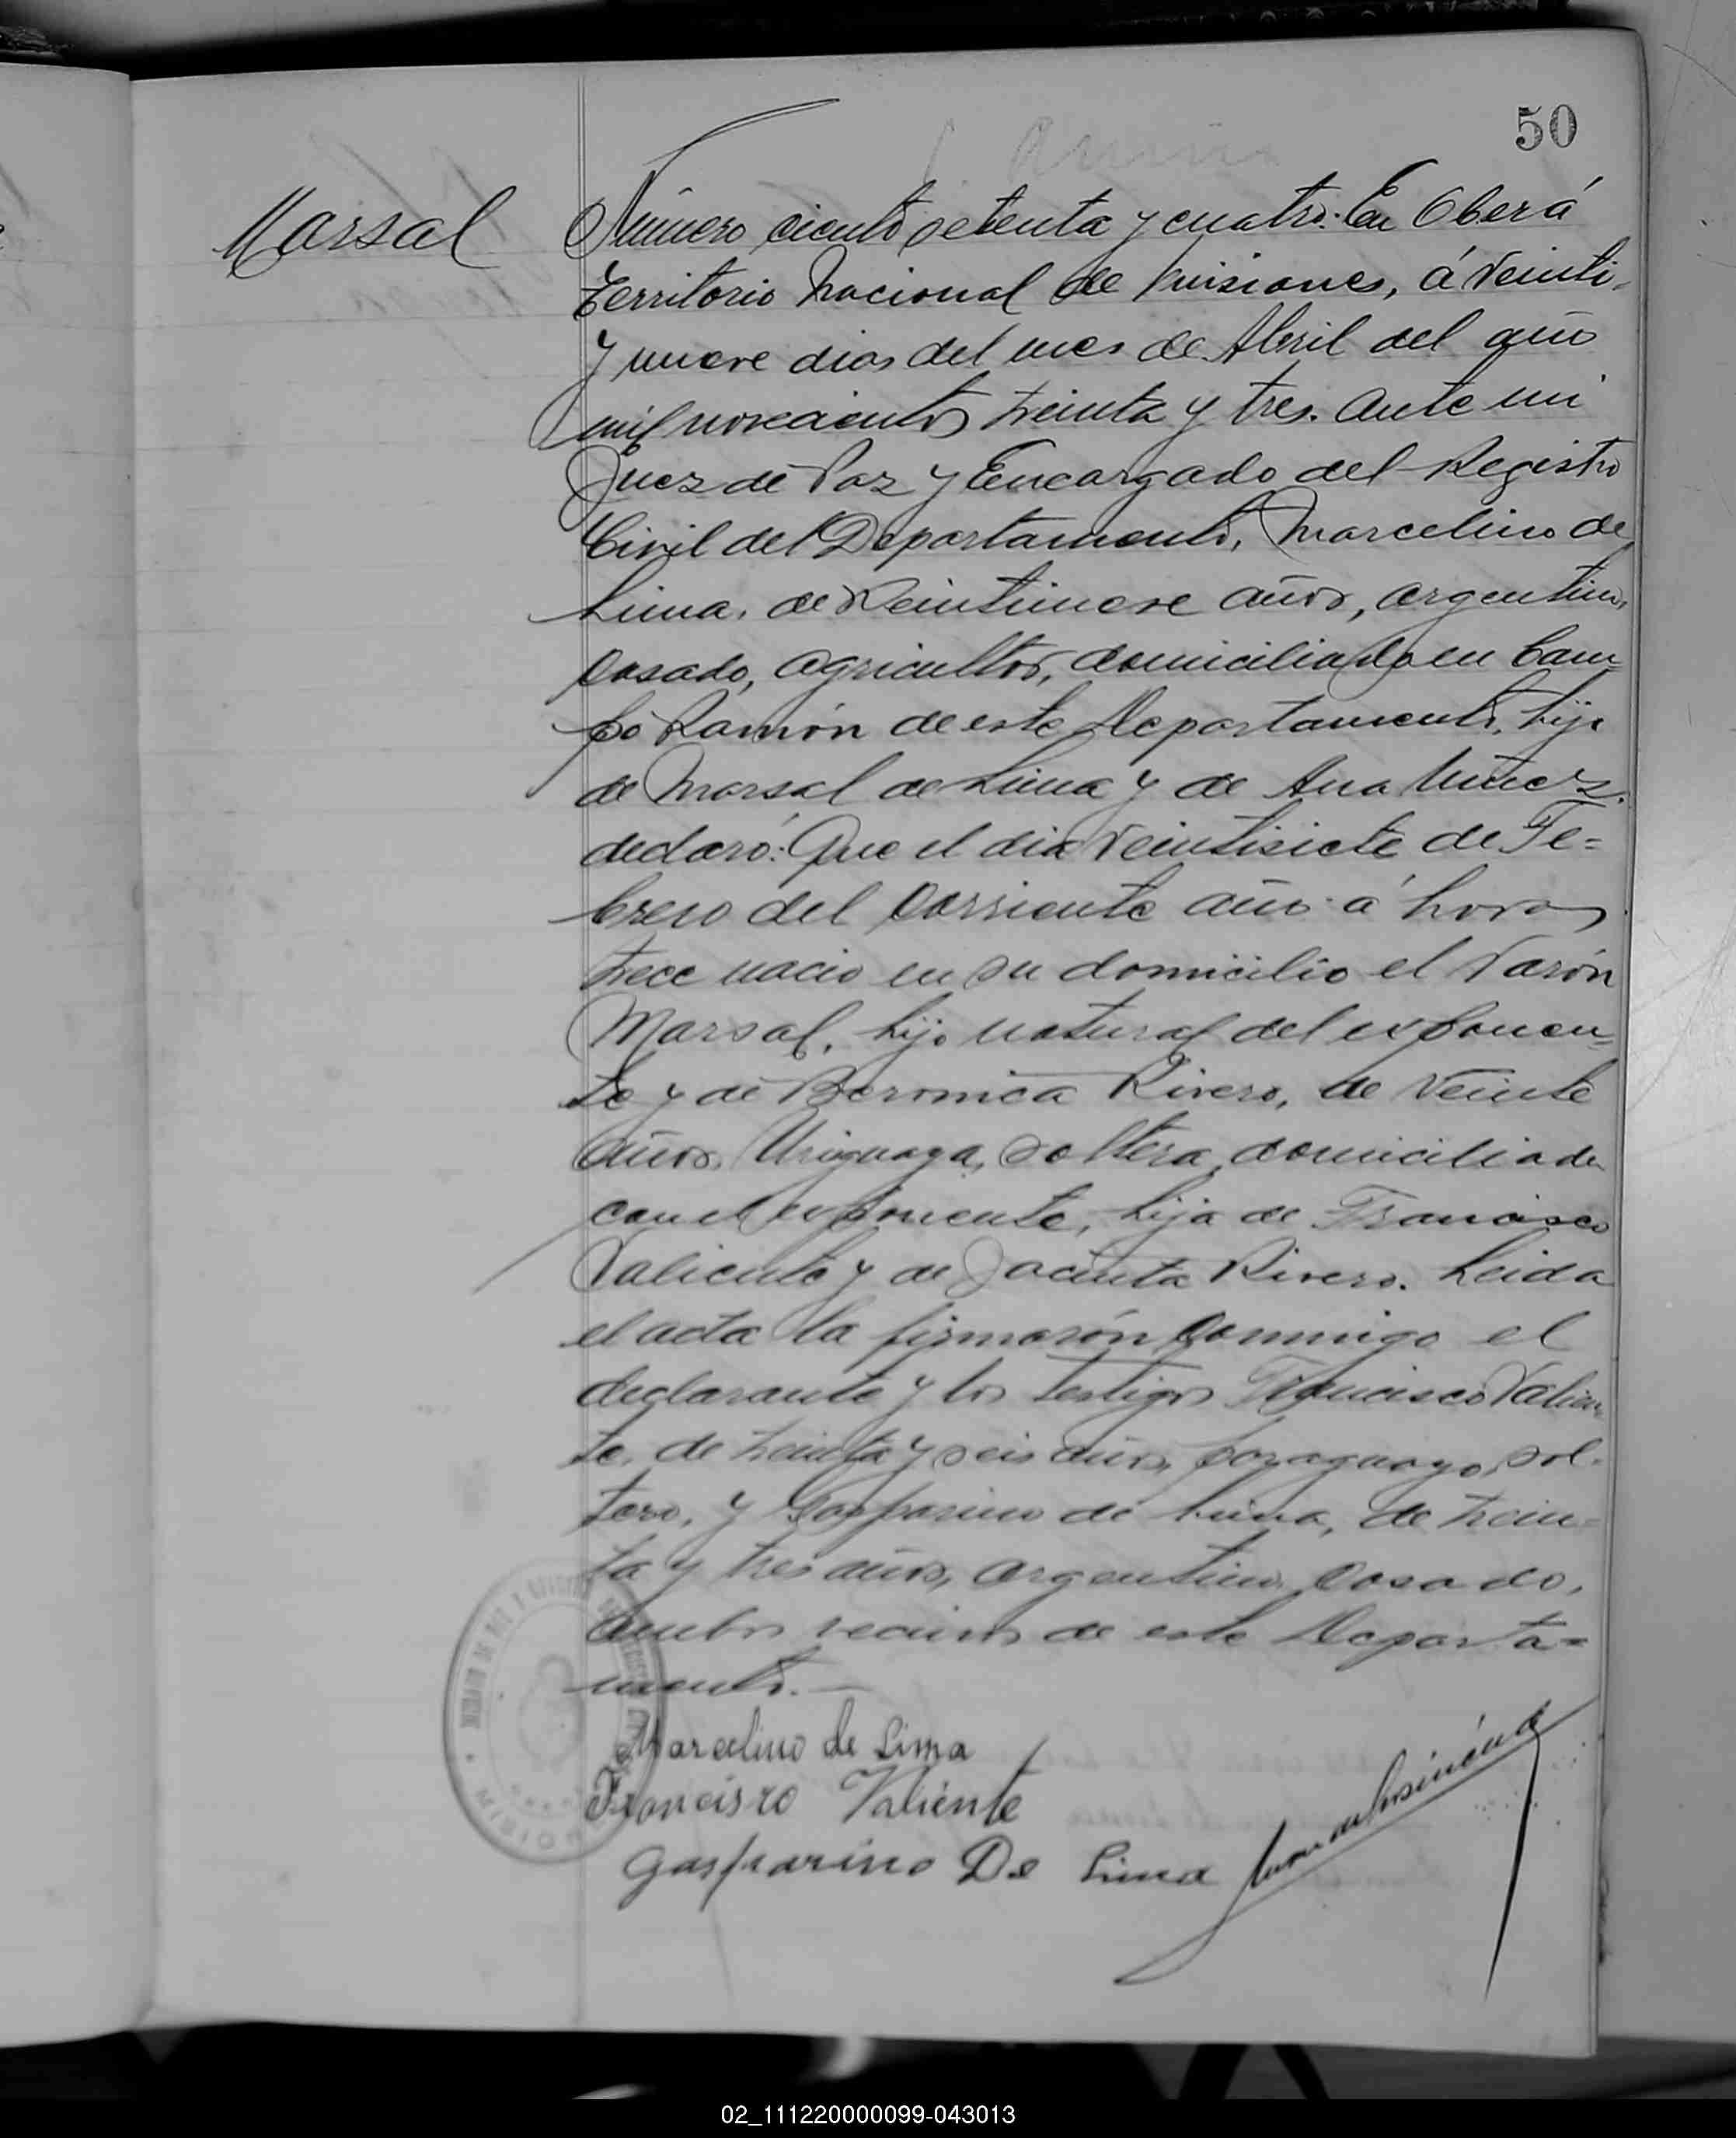 50
Marsal
Número ciento setenta y cuatro: En Oberá
Territorio Nacional de Misiones, á veinti-
y nueve dias del mes de Abril del año
mil novecientos treinta y tres. Ante mi
Juez de Paz y Encargado del Registro
Civil del Departamento, Marcelino de
Lima, de veintinueve años, argentino,
casado, agricultor, domiciliado en Cam=
po Ramón de este Departamento, hijo
de Marsal de Lima y de Ana Nuñez.
declaró: Que el dia veintisiete de Fe=
brero del corriente año á horas
trece nació en su domicilio el varón
Marsal, hijo natural del exponen=
te y de Beronica Rivero, de veinte
años, Uruguaya, soltera, domiciliada
con el exponente, hija de Francisco
Valiente y de Jacinta Rivero. Leida
el acta la firmarón conmigo el
declarante y los testigos Francisco Valien-
te, de treinta y seis años, paraguayo, sol-
tero, y Gasparino de Lima, de trein=
ta y tres años, argentino, casado,
ambos vecinos de este Departa=
mento.—
Marcelino de Lima
Francisro Valiente
Gasparino De Lima
02_111220000099-043013